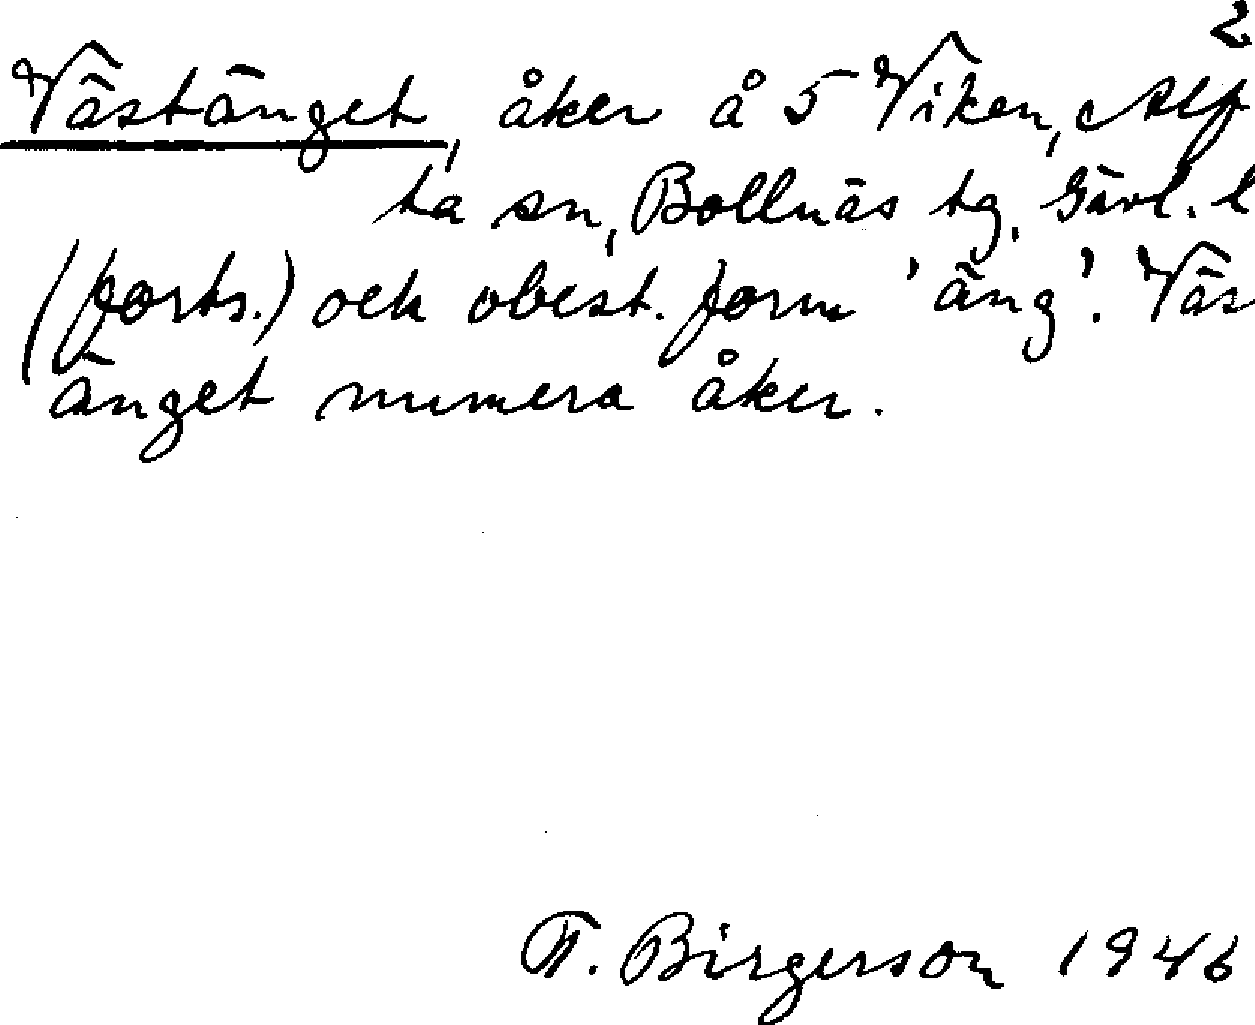 2
Västänget, åker å 5 Viken, Alf
ta sn, Bollnäs tg, Gävl. l
(forts.) och obest. form 'äng'. Väs
änget numera åker.
F. Birgerson 1946